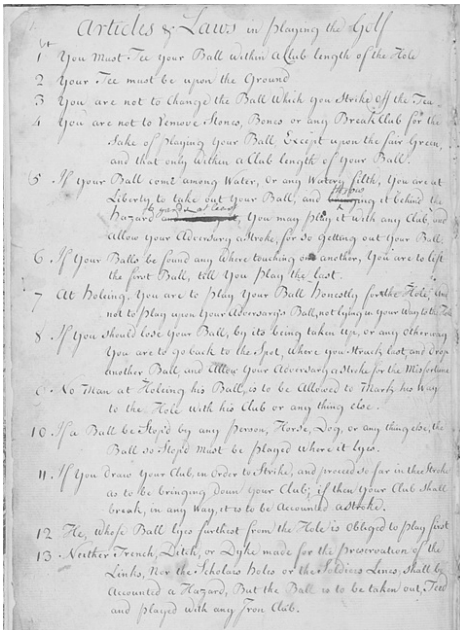 Articles & Laws in playing the Golf
1st You Must Tee your Ball within a Club length of the Hole
2 Your Tee must be upon the Ground
3 You are not to Change the Ball which you Strike off the Tee
4 You are not to Remove Stones, Bones or any Break Club for the
Sake of playing your Ball, Except upon the fair Green,
and that only within a Club length of your Ball.
5 If your Ball come among Water, or any Watery filth, You are at
throw
Liberty to take out Your Ball, and it behind the
6 yards at least
hazard, You may play it with any Club, and
allow Your Adversary a Stroke, for so getting out Your Ball.
6 If your Balls be found any where touching one another, You are to lift
the first Ball, till You play the last.
7 At holeing, You are to play Your Ball honestly for the Hole, and
not to play upon Your Adversary's Ball, not lying in Your way to the Hole
8 If you should lose Your Ball, by its being taken up, or any other way
You are to go back to the Spot, where you Struck last, and drop
another Ball, and allow Your Adversary a Stroke for the Misfortune
9 No Man at Holeing his Ball, is to be Allowed to Mark his Way
to the Hole with his Club or any thing else.
10 If a Ball be Stop'd by any person, Horse, Dog, or any thing else, the
Ball so Stop'd Must be played where it lyes.
11 If you draw Your Club, in order to Strike, and proceed so far in the Stroke
as to be bringing down Your Club; if then Your Club Shall
break, in any Way, it is to be Accounted a Stroke.
12 He, whose Ball lyes furthest from the Hole is Obliged to play first
13 Neither Trench, Ditch, or Dyke made for the preservation of the
Links, Nor the Scholars Holes or the Soldiers Lines, shall be
Accounted a Hazard, But the Ball is to be taken out, Teed
and played with any Iron Club.